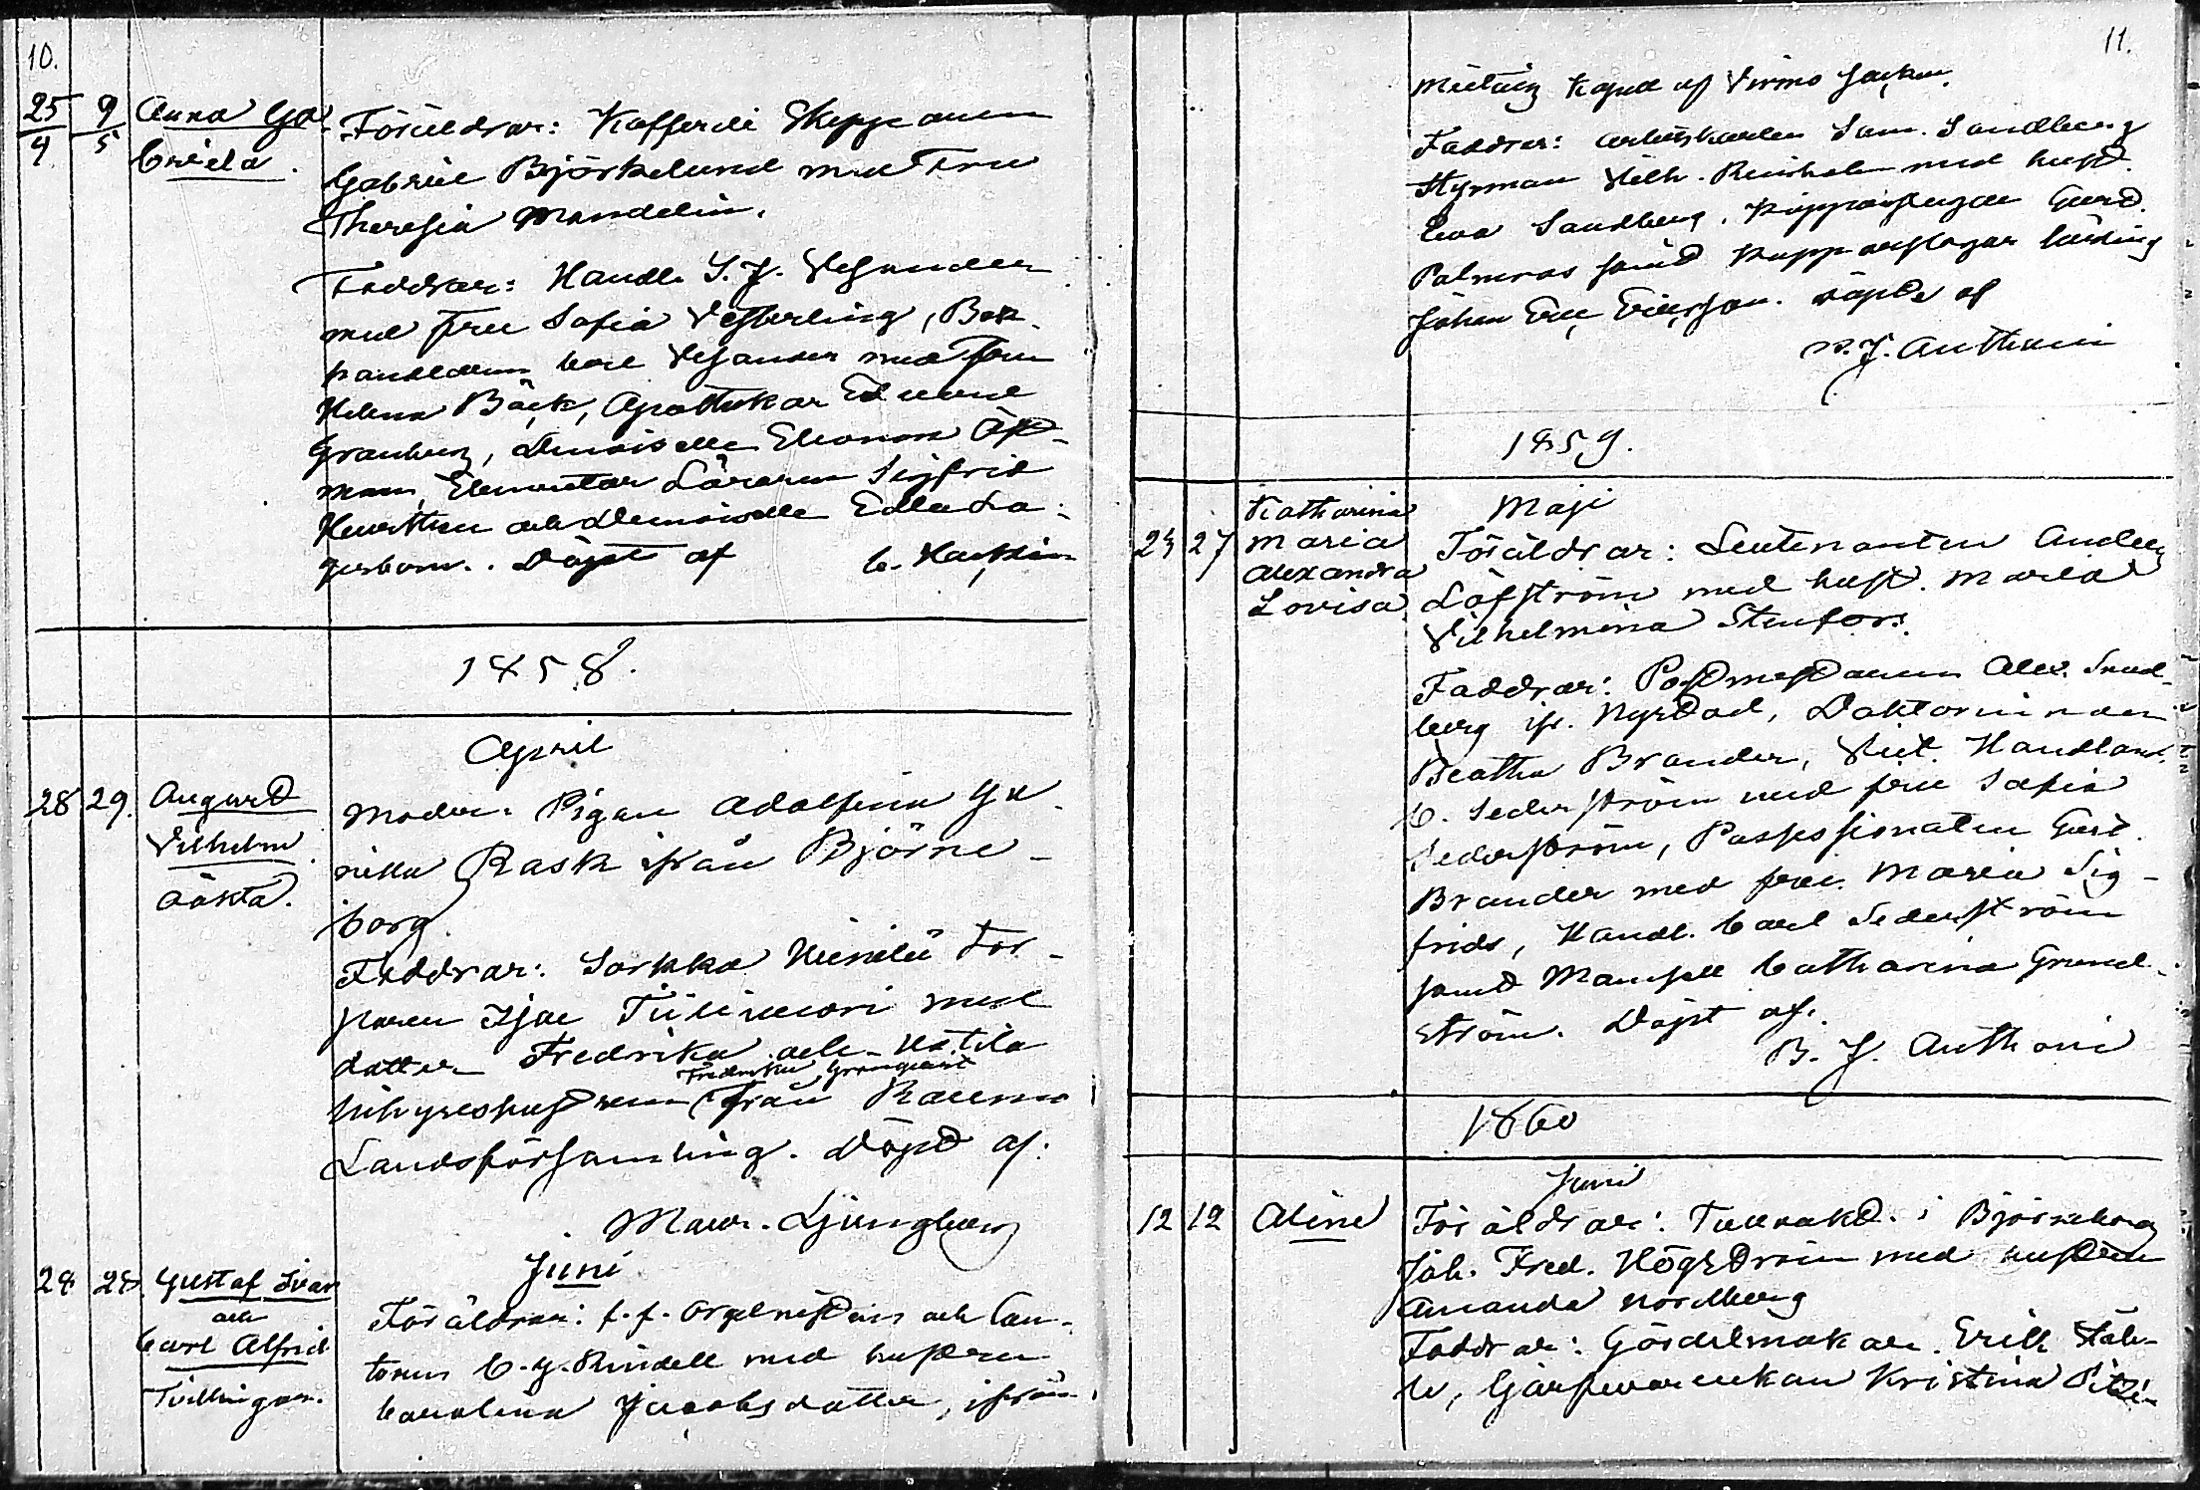 10.
25 9 Anna Ga-
4 5 briela.
Föräldrar: Kofferdi Skepparen
Gabriel Björkelund med Fru
Theresia Mandelin.
Faddrar: Handl. S. J.
med Fru Sofia Vesterling, Bok-
handlaren Carl med Fru
Helena Bäck, Apothekar Edvard
Granberg, Demoiselle Eleonora Öst-
man, Elementar Läraren Sigfrid
och Demoiselle Edla La-
gerbom. Döpt af C.
1858.
April
28 29. August
Vilhelm
oäkta.
Moder: Pigan Adolfina Gu-
nilla Rask från Björne-
borg.
Faddrar: Sorkka Torp-
paren Isac med
dotter Fredrika och Uotila
Fredrika Granqvist
inhyseshustrun från Raumo
Landsförsamling. Döpt af:
Maur. Ljungberg
Juni
28 28. Gustaf Ivar
och
Carl Alfrid
Tvillingar.
Föräldrar: f.f. Orgelnisten och Can-
torn C. G. Rindell med hustrun
Carolina Jacobsdotter, ifrån
11.
Mietois Kapell af Virmo Socken.
Faddrar: Arbetskarlen Sam. Sandberg
Styrman Vilh. Reinholm med hust.
Eva Sandberg, Kopparslagar Gust.
Palmroos samt Kopparslagar lärling
Johan Eric Ericsson. döpte af
B. J. Anthoni
1859.
Maji
24 27 Katharina
Maria
Alexandra
Lovisa.
Föräldrar: Leutenanten Anders
Löfström med hust. Maria
Vilhelmina Stenfors.
Faddrar: Postmestaren Alex. Sund-
berg ifr. Nystad, Doktorinnan
Beatha Brander, Vict. Handland.
C. Sederström med fru Sofia
Sederström, Possessionaten Gust.
Brander med fru Maria Sig-
frids, Handl. Carl Sederström
samt Mamsell Catharina Grund-
ström. Döpt af.
B. J. Anthoni
1860
Juni
12 12 Aline
Föräldrar: Tullvakt. i Björneborg
Joh. Fred. Högström med hustrun
Amanda Nordberg
Faddrar: Gördelmakar. Erik Ståh-
le, Garfvareenkan Kristina